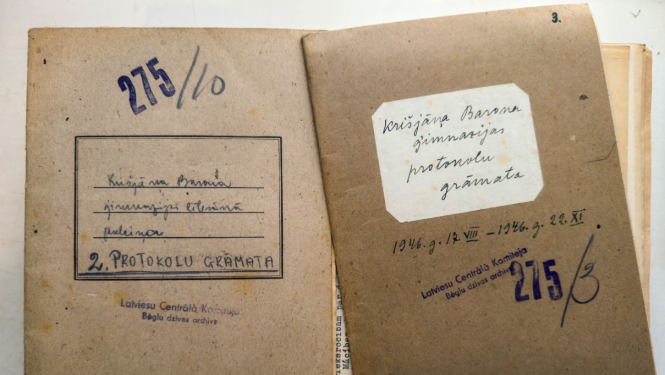 275/10
Krišjāņa Barona
ģimnazijas
pulciņa
2. PROTOKOLU GRĀMATA
Latviesu Centrālā Komiteja
Bēgļu dzives archivs
3.
Krišjāņa Barona
ģimnazijas
protokolu
grāmata
1946. g. 17. VIII – 1946. g. 22. XI
Latviesu Centrālā Komiteja
Bēgļu dzives archivs
275/3